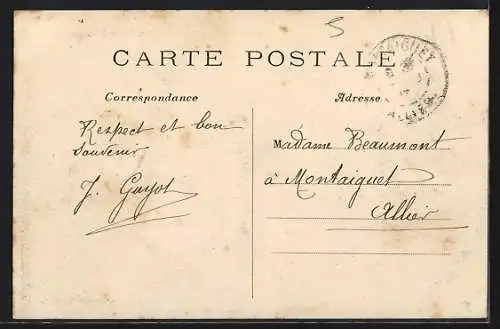 5
CARTE POSTALE
MONTAIGUET
ALLIER
Correspondance
Adresse
Respect et bon
Souvenir
J. Guyot
Madame Beaumont
à Montaiguet
Allier